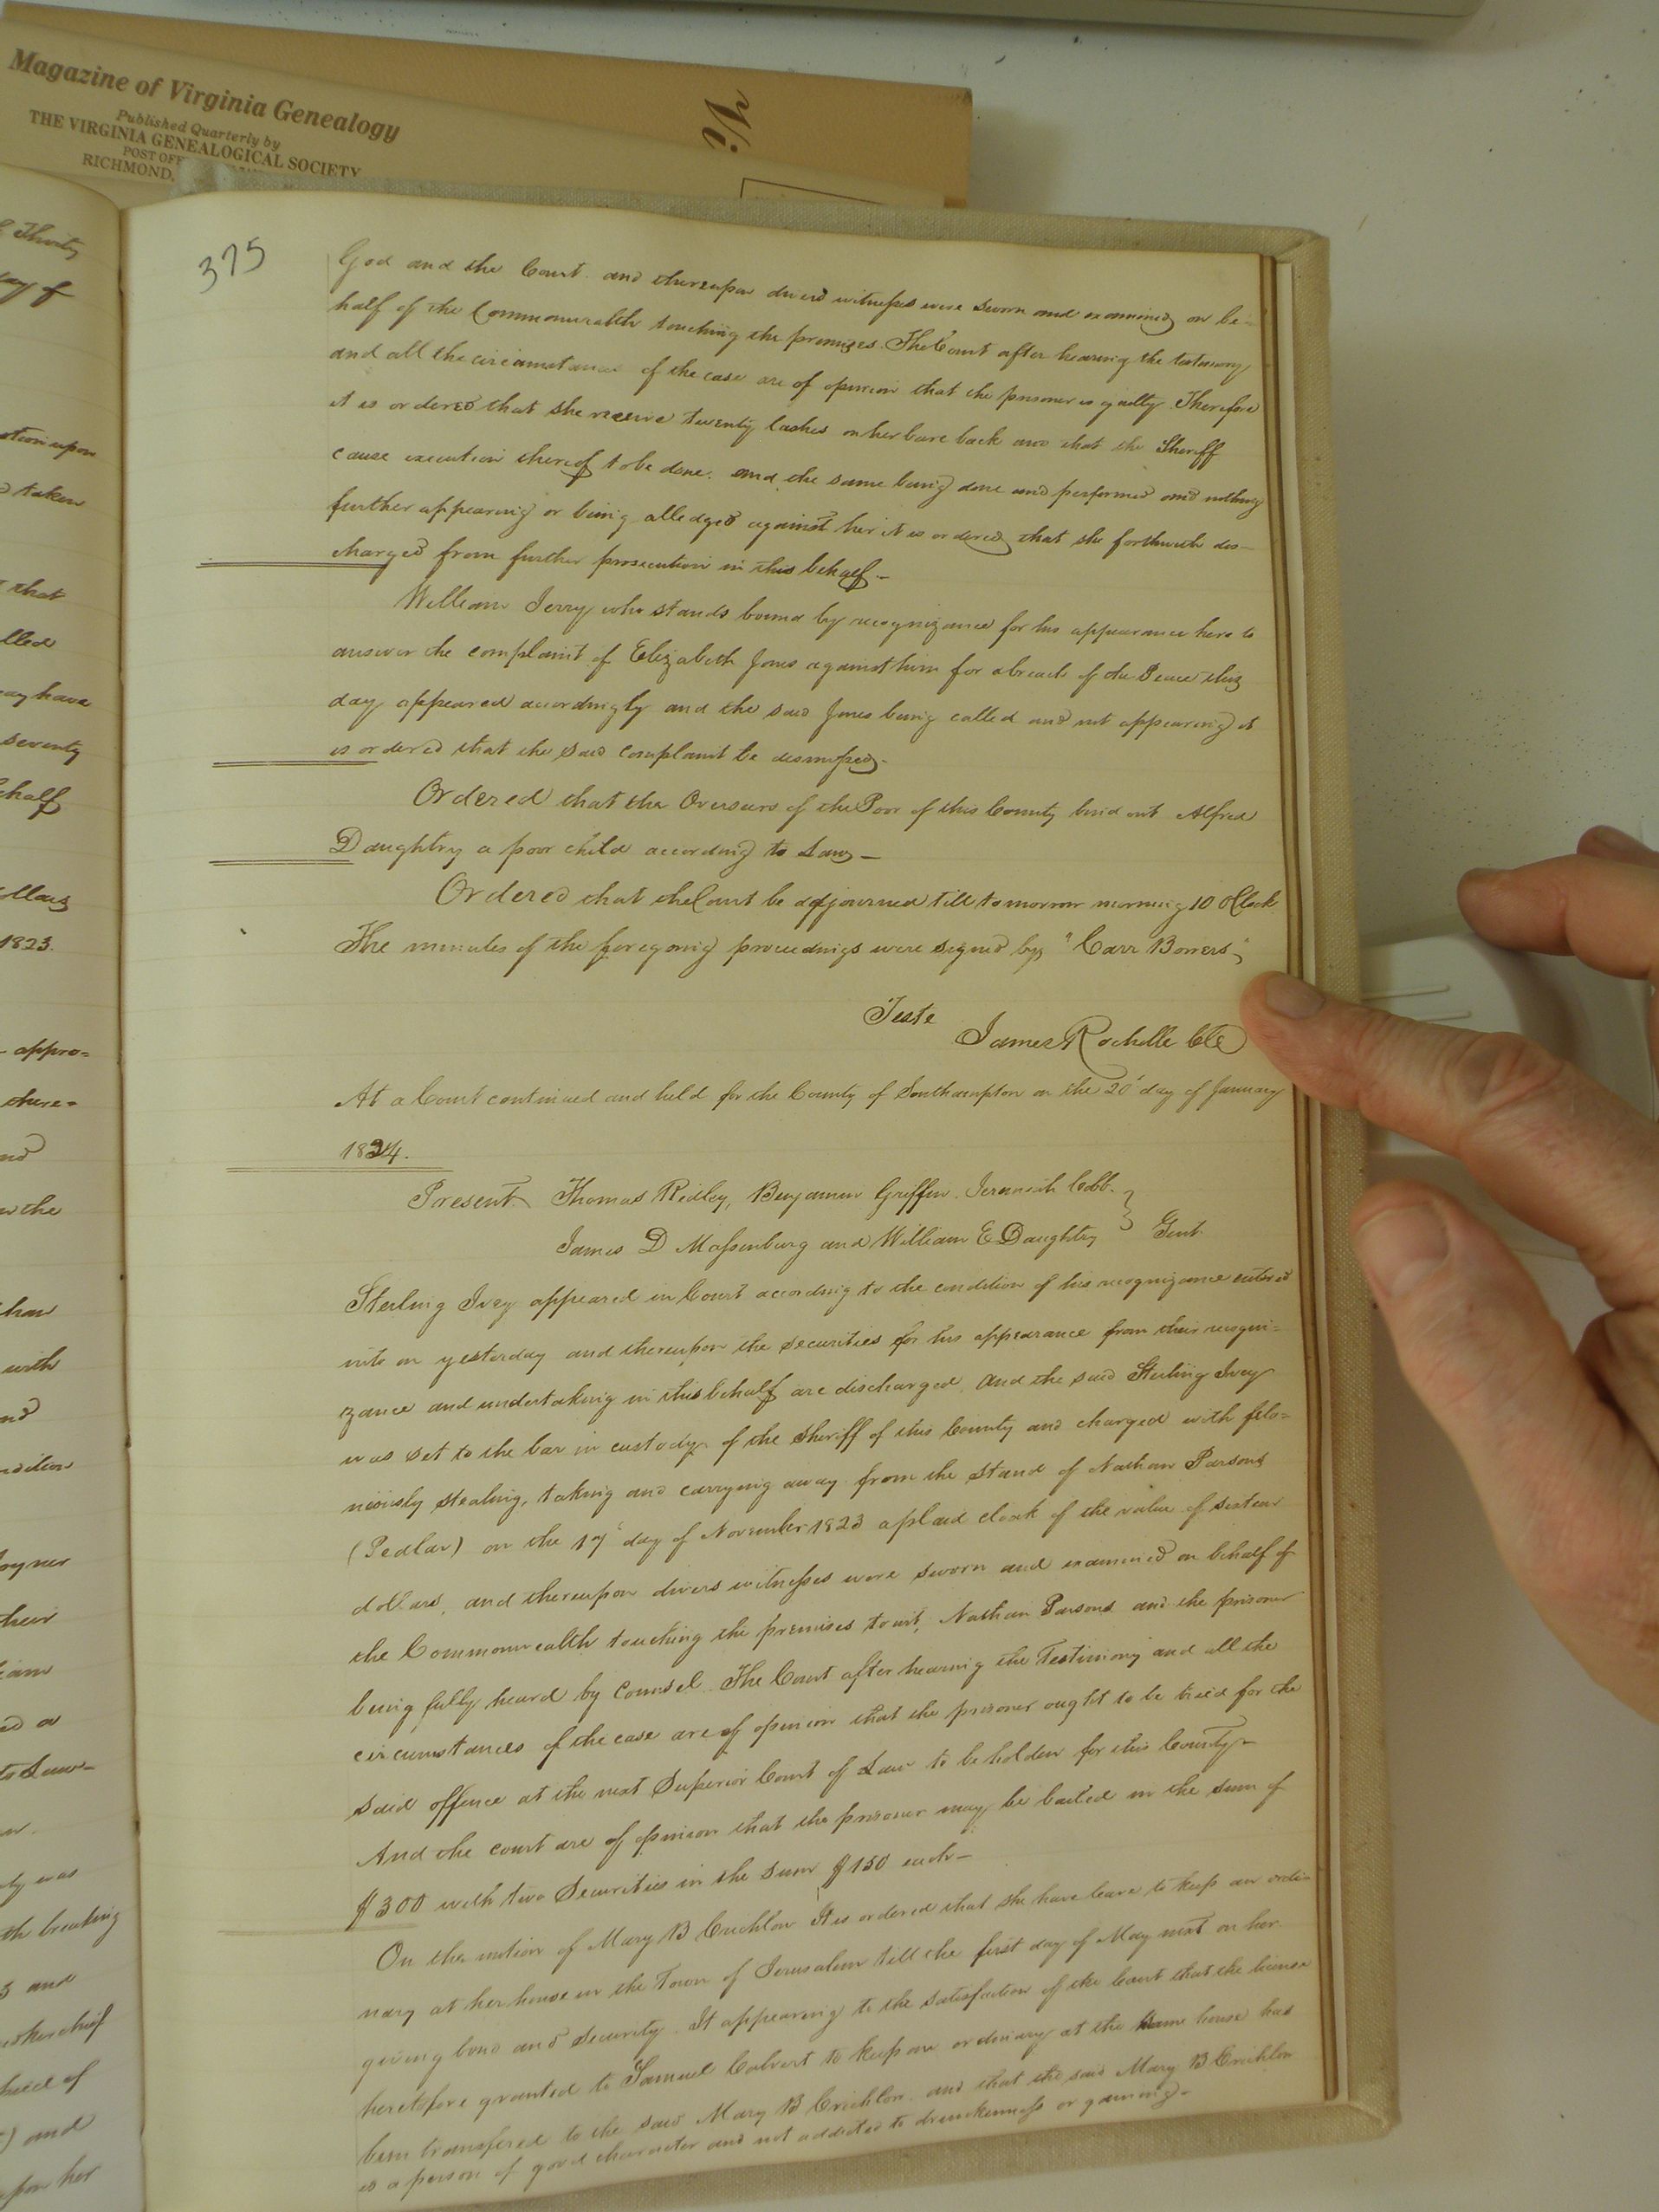 Magazine of Virginia Genealogy
Published Quarterly by
THE VIRGINIA GENEALOGICAL SOCIETY
POST OFF
RICHMOND,
Va
375
God and the Court. and thereupon divers witnesses were sworn and examined on be-
half of the Commonwealth touching the premises. The Court after hearing the testimony
and all the circumstances of the case are of opinion that the prisoner is guilty. Therefore
it is ordered that she receive twenty lashes on her bare back and that the Sheriff
cause execution thereof to be done. and the same being done and performed and nothing
further appearing or being alledged against her it is ordered that she forthwith dis-
charged from further prosecution in this behalf.-
William Jerry who stands bound by recognizance for his appearance here to
answer the complaint of Elizabeth Jones against him for a breach of the Peace this
day appeared accordingly and the said Jones being called and not appearing it
is ordered that the said complaint be dismissed.
Ordered that the Overseers of the Poor of this County bind out Alfred
Daughtry a poor child according to Law-
Ordered that the Court be adjourned till tomorrow morning 10 OClock.
The minutes of the foregoing proceedings were signed by "Carr Bowers"
Teste
James Rochelle Clk
At a Court continued and held for the County of Southampton on the 20 day of January
1824.
Present Thomas Ridley, Benjamin Griffin, Jeremiah Cobb.
James D Massenburg and William E Daughtry } Gent.
Sterling Ivey appeared in Court according to the condition of his recognizance entered
into on yesterday and thereupon the securities for his appearance from their recogni-
zance and undertaking in this behalf are discharged. And the said Sterling Ivey
was set to the bar in custody of the Sheriff of this County and charged with felo-
niously stealing, taking and carrying away from the stand of Nathan Parsons
(Pedlar) on the 17 day of November 1823 a plaid cloak of the value of sixteen
dollars, and thereupon divers witnesses were sworn and examined on behalf of
the Commonwealth touching the premises towit, Nathan Parsons and the prisoner
being fully heard by Counsel. The Court after hearing the Testimony and all the
circumstances of the case are of opinion that the prisoner ought to be tried for the
said offence at the next Superior Court of Law to be holden for this County-
And the court are of opinion that the prisoner may be bailed in the sum of
$300 with two Securities in the sum $150 each-
On the motion of Mary B Crichlow It is ordered that she have leave to keep an ordi-
nary at her house in the Town of Jerusalem till the first day of May next on her
giving bond and security. It appearing to the satisfaction of the Court that the license
heretofore granted to Samuel Calvert to keep an ordinary at the same house has
been transfered to the said Mary B Crichlow. and that the said Mary B Crichlow
is a person of good character and not addicted to drunkenness or gaming-